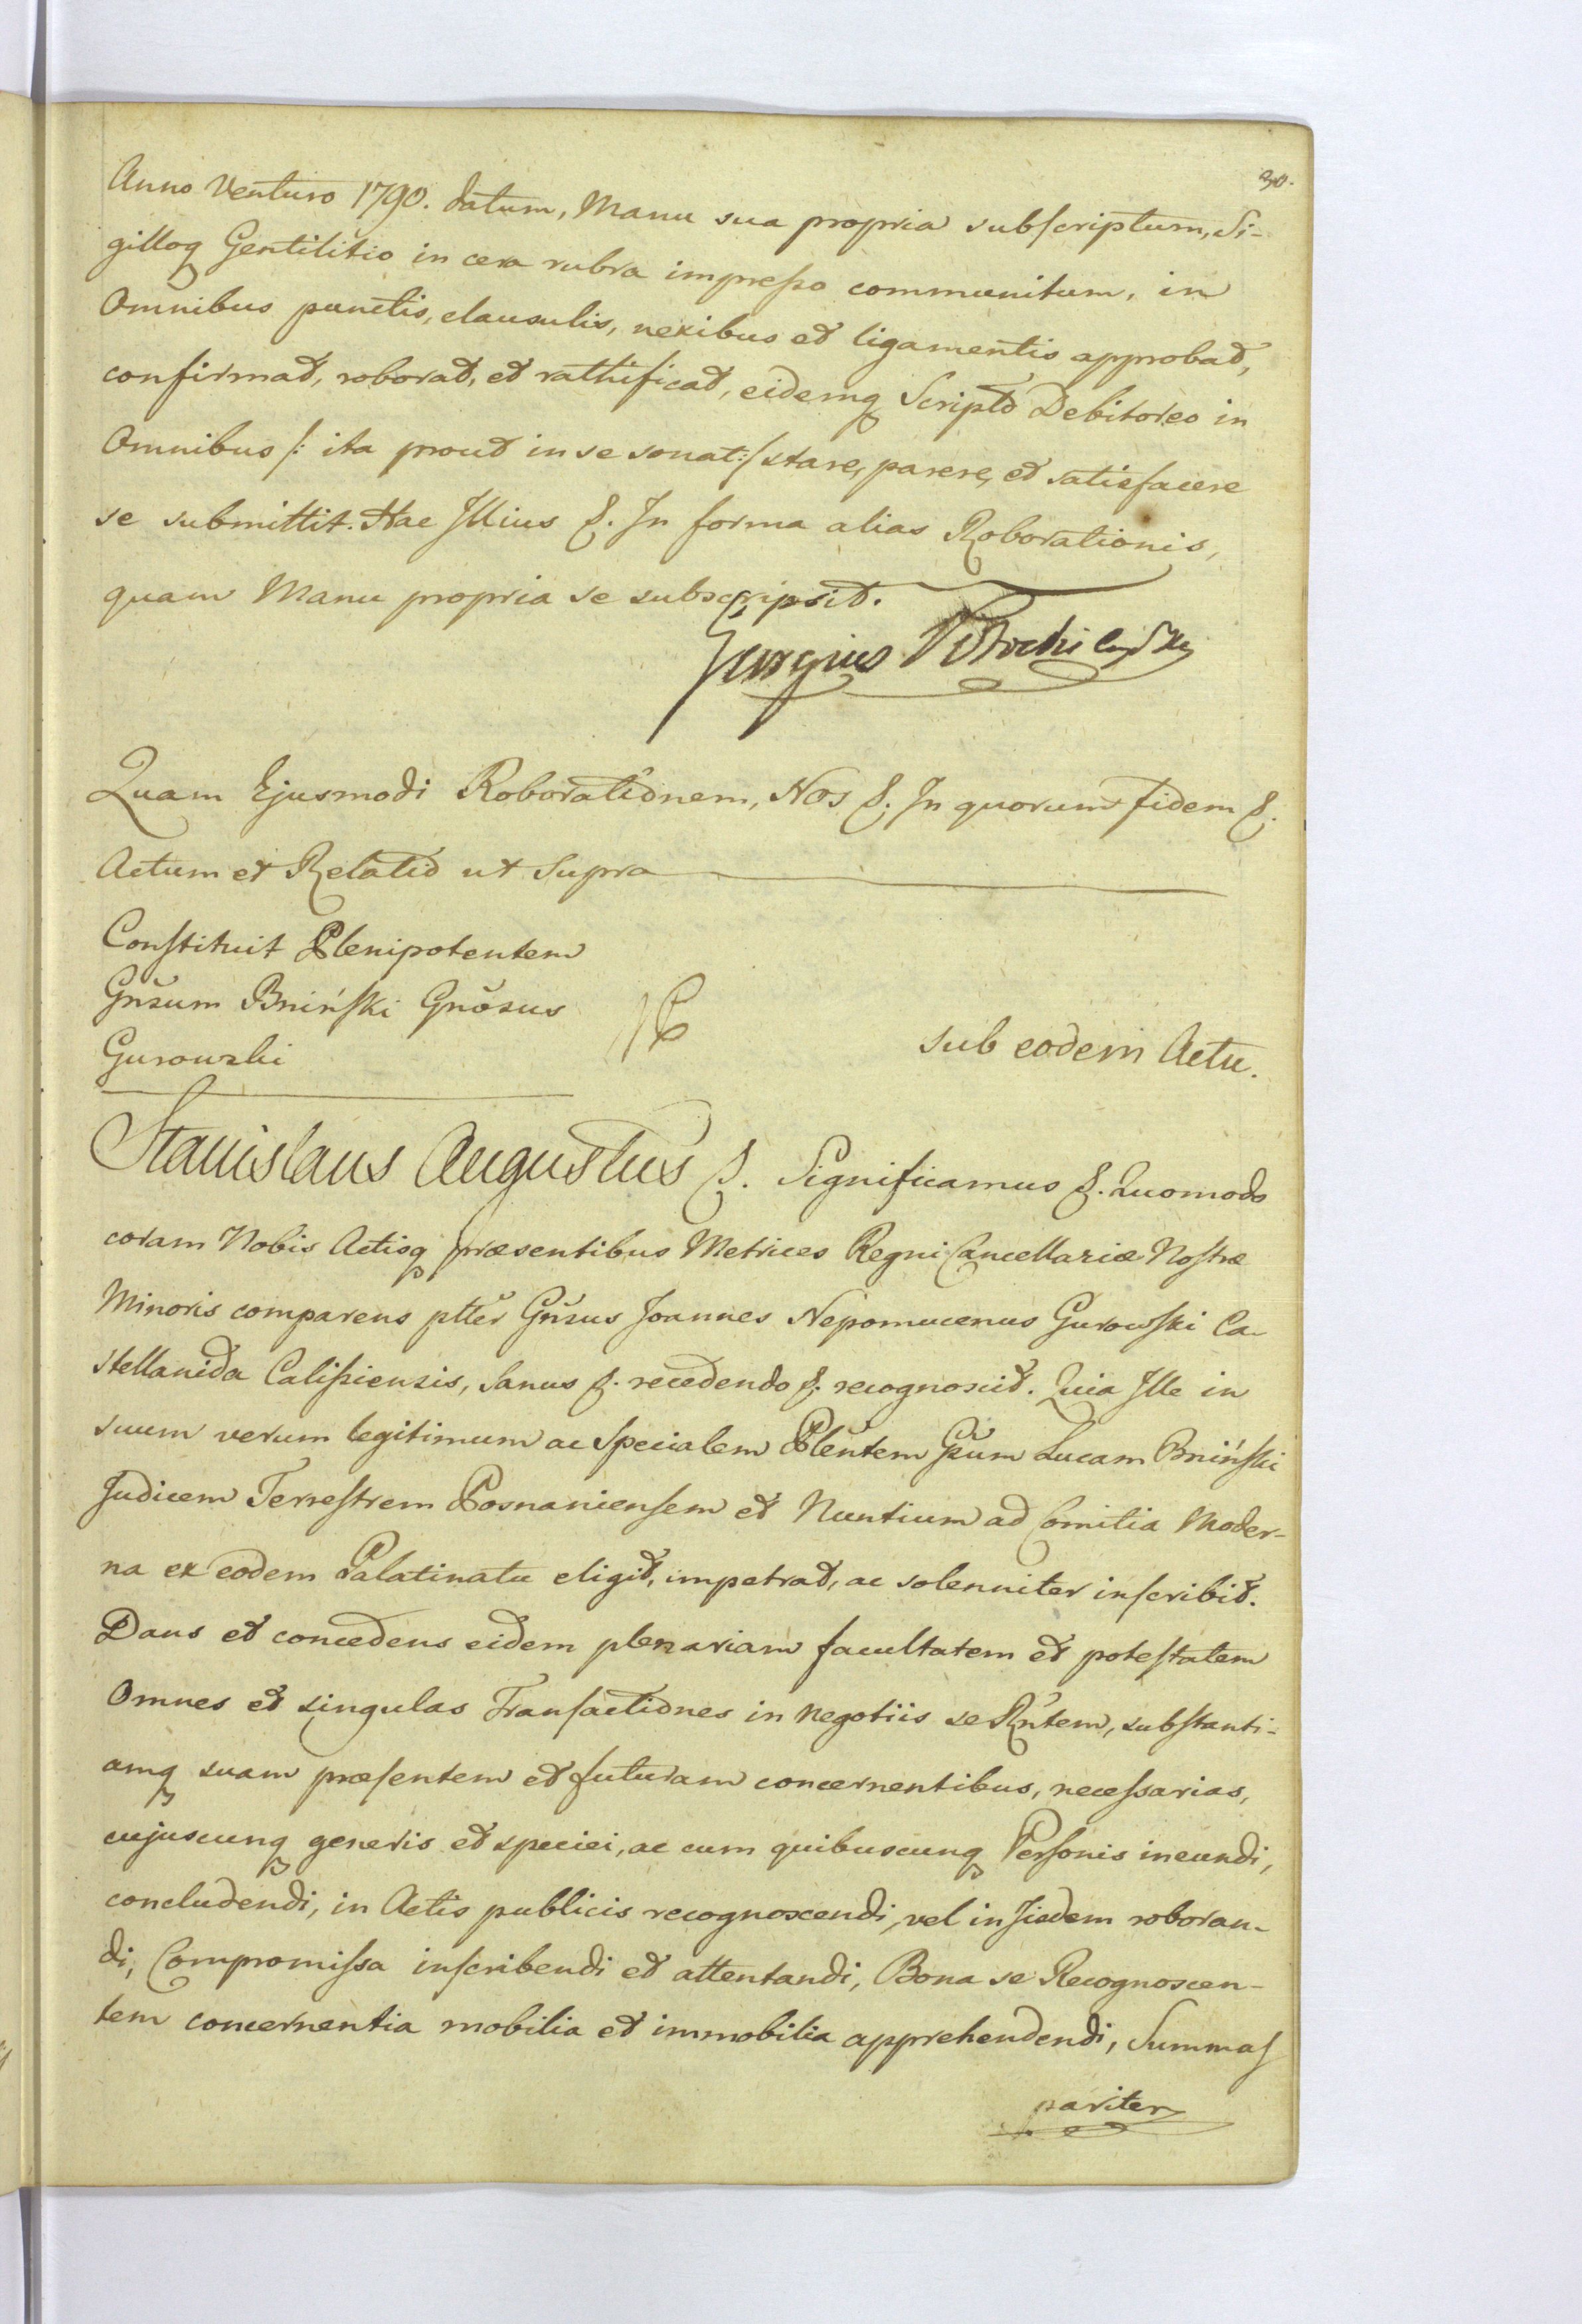 30.
Anno Venturo 1790. datum, Manu sua propria subscriptum, Si-
gilloq Gentilitio in cera rubra impresso communitum, in
Omnibus punctis, clausulis, nexibus et ligamentis approbat,
confirmat, roborat, et rathificat, eidemq Scripto Debitoreo in
Omnibus /: ita prout in se sonat :/ stare, parere, et satisfacere
se submittit. Hac Illius &. In forma alias Roborationis,
quam Manu propria se subscripsit.
Quam Ejusmodi Roborationem, Nos &. In quorum fidem &.
Actum et Relatio ut Supra
Constituit Plenipotentem
Gnsum Bniński Gnosus
Gurowski
sub eodem Actu.
Stanislaus Augustus &. Significamus &. Quomodo
coram Nobis Actisq præsentibus Metrices Regni Cancellariæ Nostræ
Minoris comparens pltter Gnsus Joannes Nepomucenus Gurowski Ca-
stellanida Calissiensis, Sanus &. recedendo &. recognoscit. Quia Ille in
suum verum legitimum ac Specialem Plentem Lucam Bniński
Judicem Terrestrem Posnaniensem et Nuntium ad Comitia Moder-
na ex eodem Palatinatu eligit, impetrat, ac solenniter inscribit.
Dans et concedens eidem plenariam facultatem et potestatem
Omnes et singulas Transactiones in negotiis se Rntem, substanti-
amq suam præsentem et futuram concernentibus, necessarias,
cujuscunq generis et speciei, ac cum quibuscunq Personis ineundi,
concludendi, in Actis publicis recognoscendi, vel in Jisdem roboran-
di, Compromissa inscribendi et attentandi, Bona se Recognoscen-
tem concernentia mobilia et immobilia apprehendendi, Summas
pariter